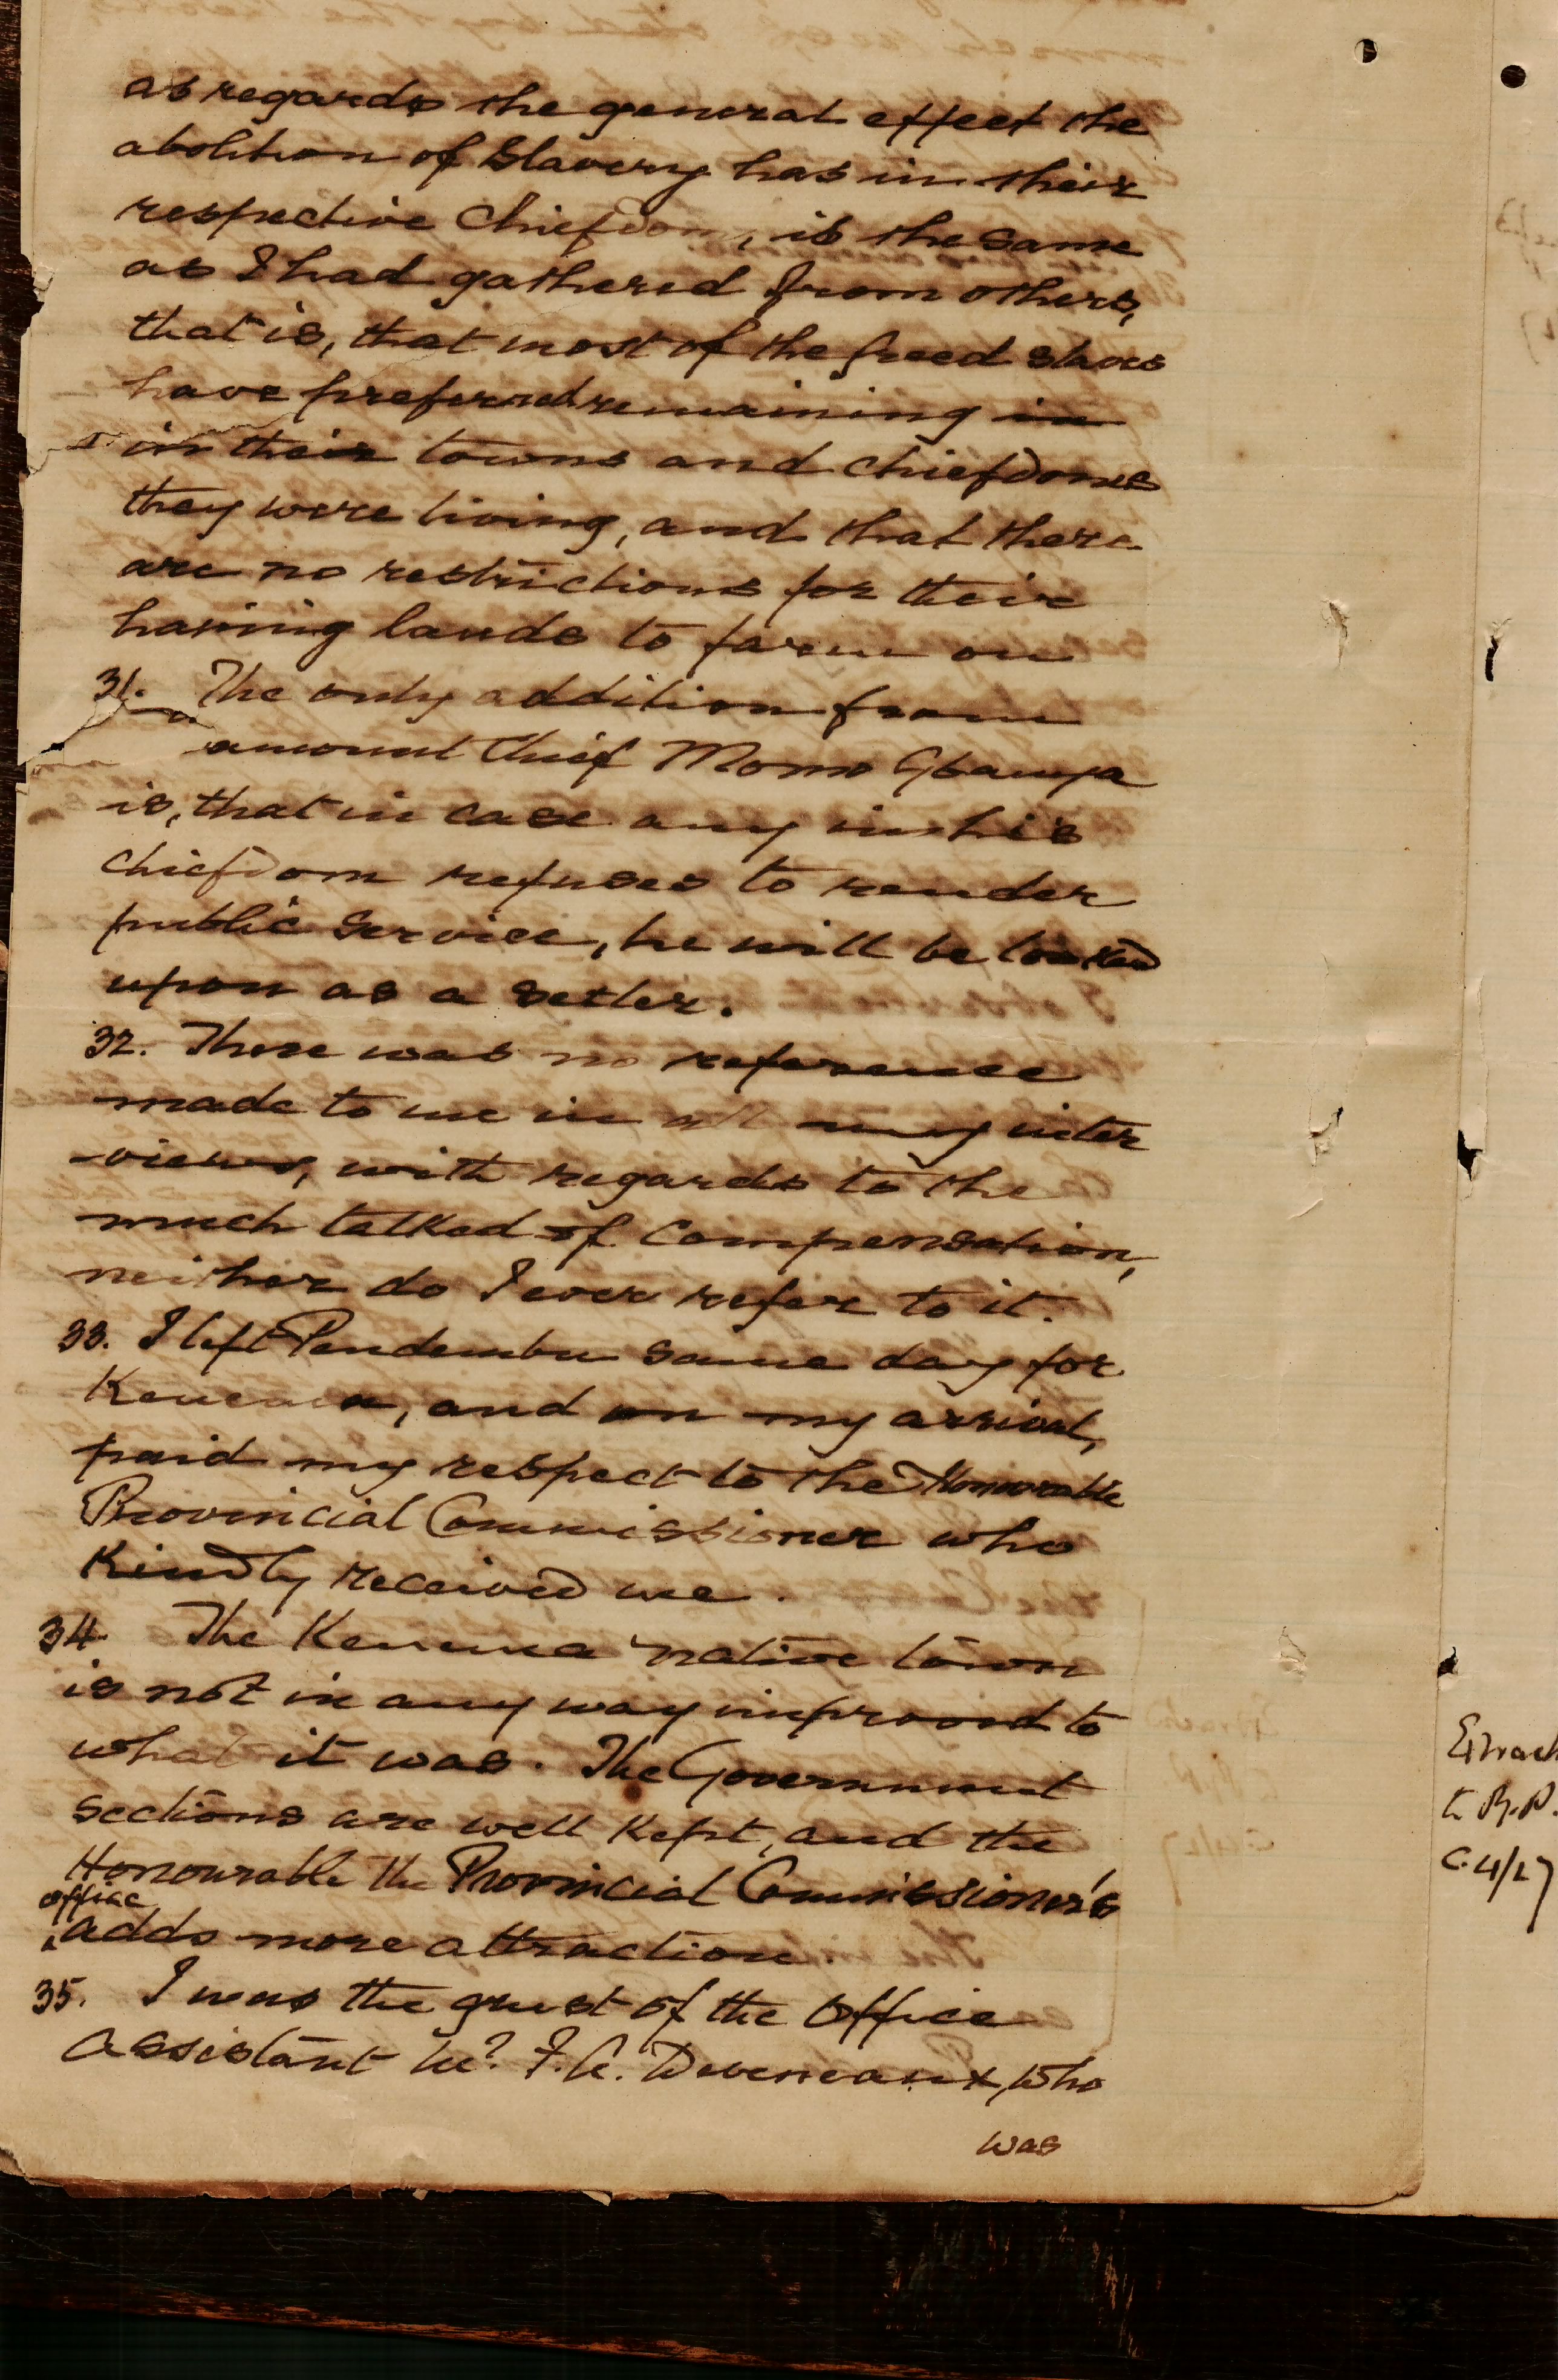 as regards the general effect the
abolition of Slavery has in their
respective Chiefdom, is the same
as I had gathered from others,
that is, that most of the freed slaves
have preferred remaining in
in their towns and chiefdoms
they were living, and that there
are no restrictions for their
having lands to farm on
31. The only addition from
amount Chief Momo Gbanya
is, that in case any in his
chiefdom refuses to render
public service, he will be looked
upon as a setler.
32. There was no reference
made to me in all my inter
-views, with regards to the
much talked of Compensation,
neither do I ever refer to it.
33. I left Pendembu same day for
Kenema, and on my arrival,
paid my respect to the Honourable
Provincial Commissioner who
Kindly received me.
34. The Kenema native town
is not in any way improved to
what it was. The Government
sections are well Kept, and the
Honourable the Provincial Commissioner's
office
adds more attraction.
35. I was the guest of the Office
assistant Mr. F.A. Deveneaux, who
was
to
C.4/27